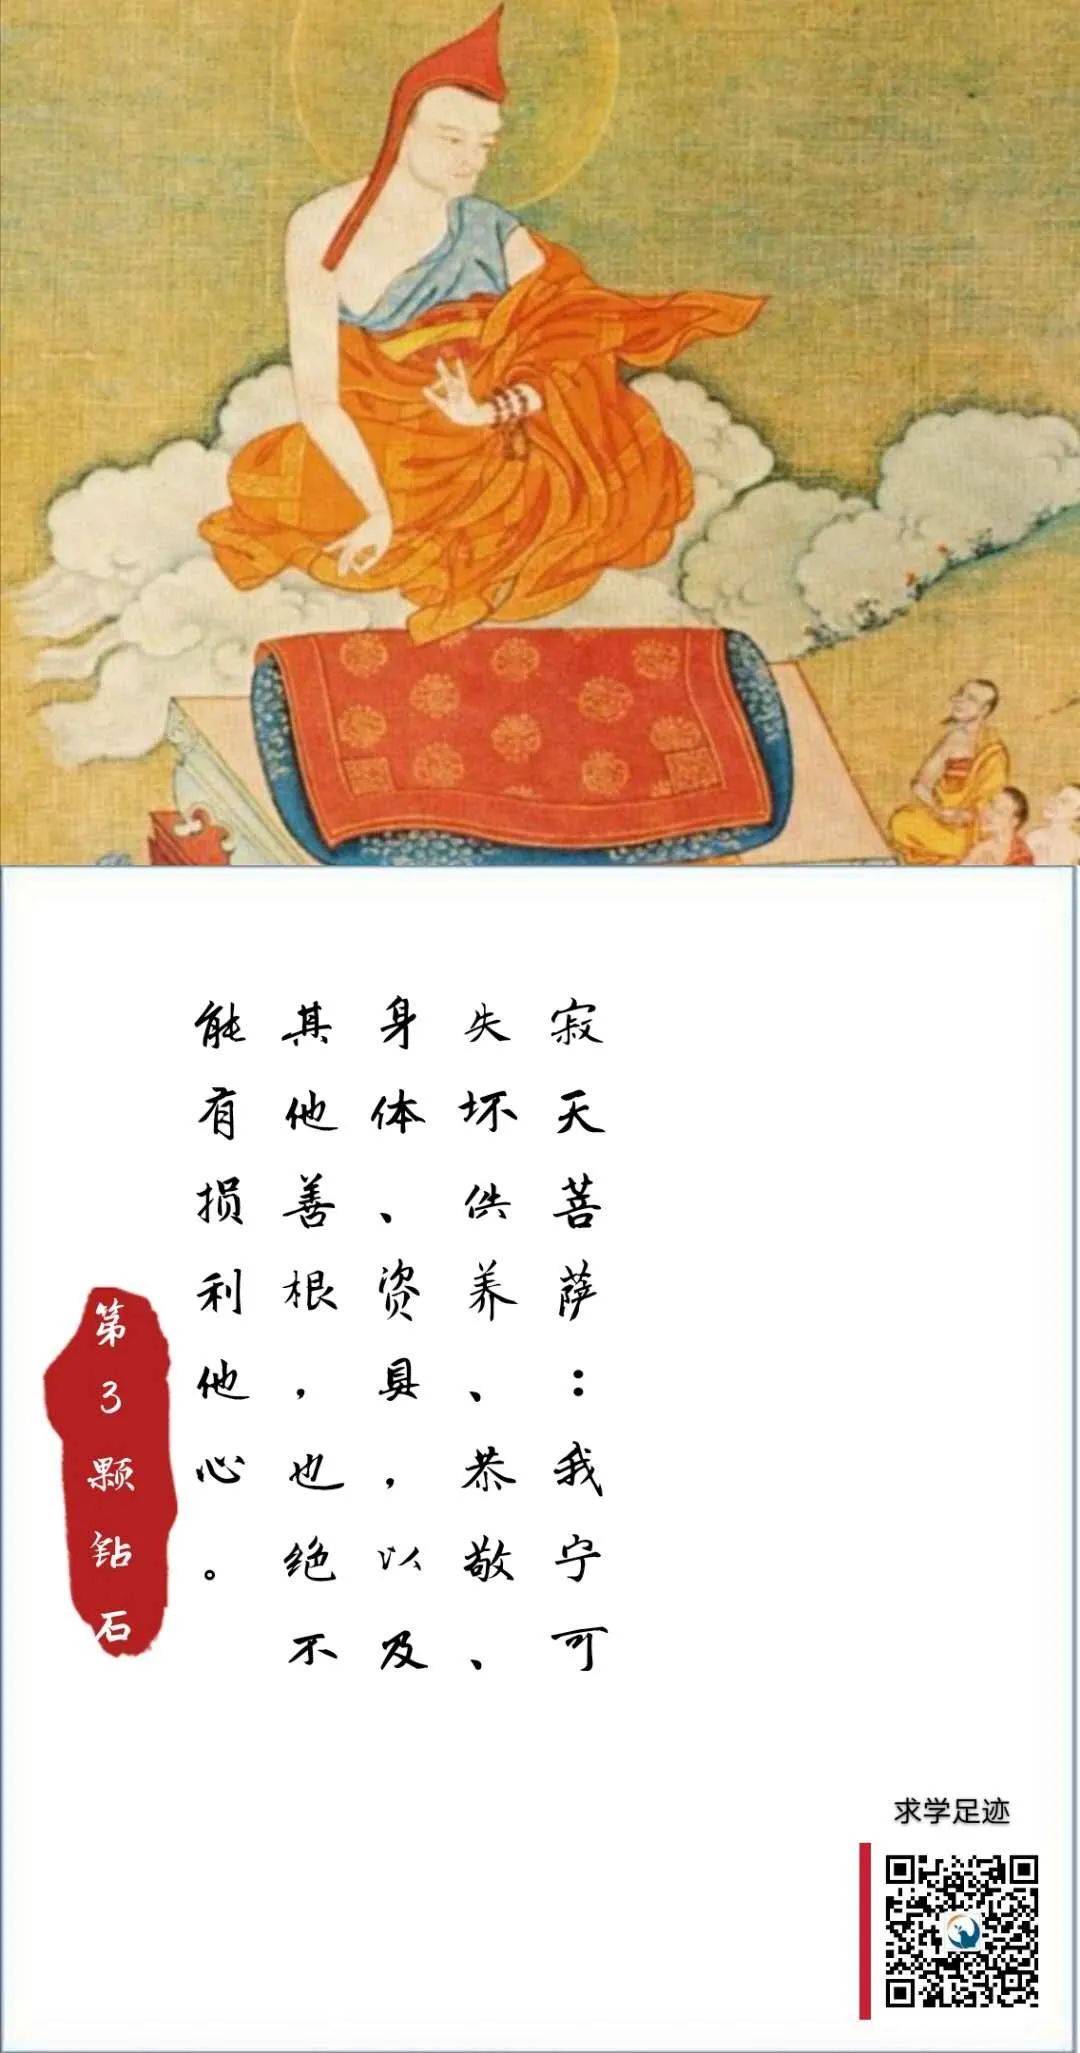 寂天菩萨：我宁可
失坏供养、恭敬、
身体、资具，以及
其他善根，也绝不
能有损利他心。
第3颗钻石
求学足迹